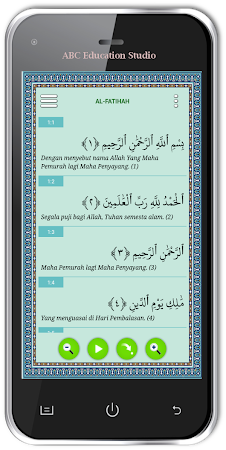 ABC Education Studio
AL-FATIHAH
1:1
بِسْمِ ٱللَّهِ ٱلرَّحْمَٰنِ ٱلرَّحِيمِ ﴿١﴾
Dengan menyebut nama Allah Yang Maha
Pemurah lagi Maha Penyayang. (1)
1:2
ٱلْحَمْدُ لِلَّهِ رَبِّ ٱلْعَٰلَمِينَ ﴿٢﴾
Segala puji bagi Allah, Tuhan semesta alam. (2)
1:3
ٱلرَّحْمَٰنِ ٱلرَّحِيمِ ﴿٣﴾
Maha Pemurah lagi Maha Penyayang. (3)
1:4
مَٰلِكِ يَوْمِ ٱلدِّينِ ﴿٤﴾
Yang menguasai di Hari Pembalasan. (4)